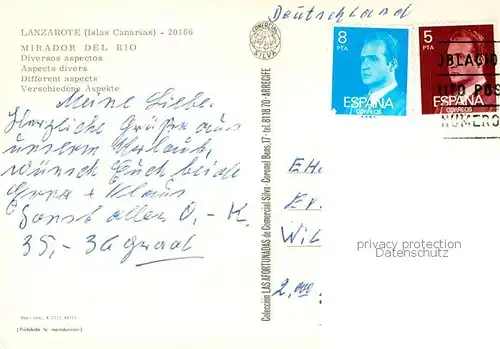 LANZAROTE (Islas Canarias) - 20166
MIRADOR DEL RIO
Diversos aspectos
Aspects divers
Different aspects
Verschiedene Aspekte
Meine Liebe.
Herzliche Grüße aus
unserem Urlaub,
wünscht Euch beiden
+ Klaus
Sonst alles O. - K.
35,- 36 Grad
(Prohibida la reproducción)
COMERCIAL SILVA
Colección LAS AFORTUNADAS de Comercial Silva - Coronel Bens, 17 - tel. 81 18 70 - ARRECIFE
Deutschland
8
PTA
ESPAÑA
CORREOS
5
PTA
ESPAÑA
CORREOS
OBLACIO
ITO POS
NUMERO
EH
Er
Wil
2,000
privacy protection
Datenschutz